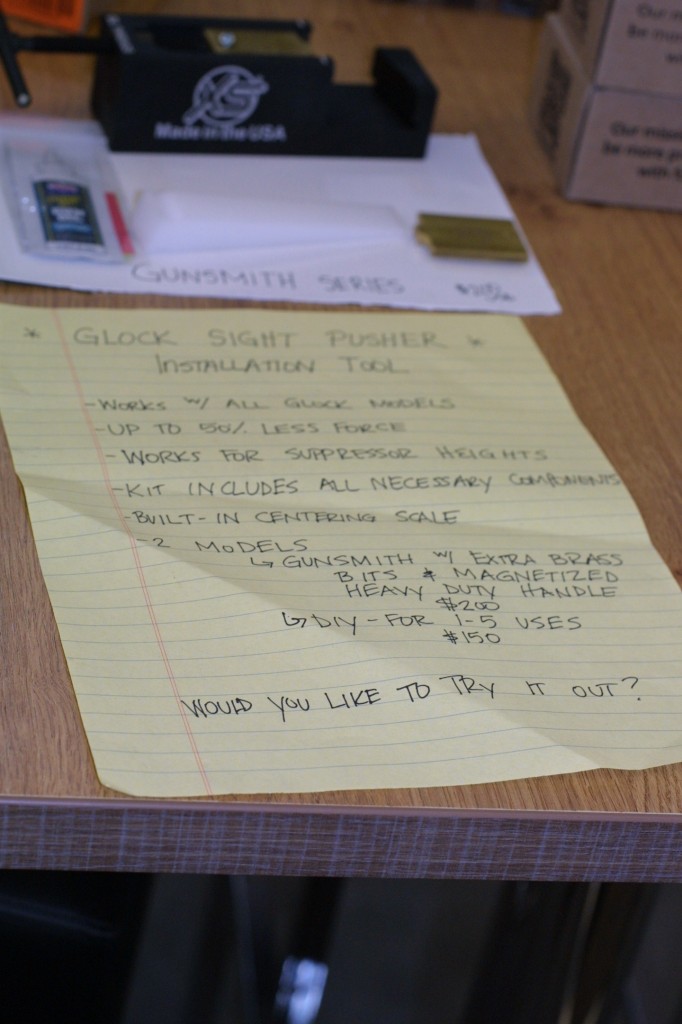 XS
Made in the USA
Our
be mo
wi
Our miss
be more p
with
GUNSMITH SERIES
* GLOCK SIGHT PUSHER *
INSTALLATION TOOL
- WORKS W/ ALL GLOCK MODELS
- UP TO 50% LESS FORCE
- WORKS FOR SUPPRESSOR HEIGHTS
- KIT INCLUDES ALL NECESSARY COMPONENTS
- BUILT-IN CENTERING SCALE
- 2 MODELS
↳ GUNSMITH W/ EXTRA BRASS
BITS & MAGNETIZED
HEAVY DUTY HANDLE
$200
↳ DIY - FOR 1-5 USES
$150
WOULD YOU LIKE TO TRY IT OUT?